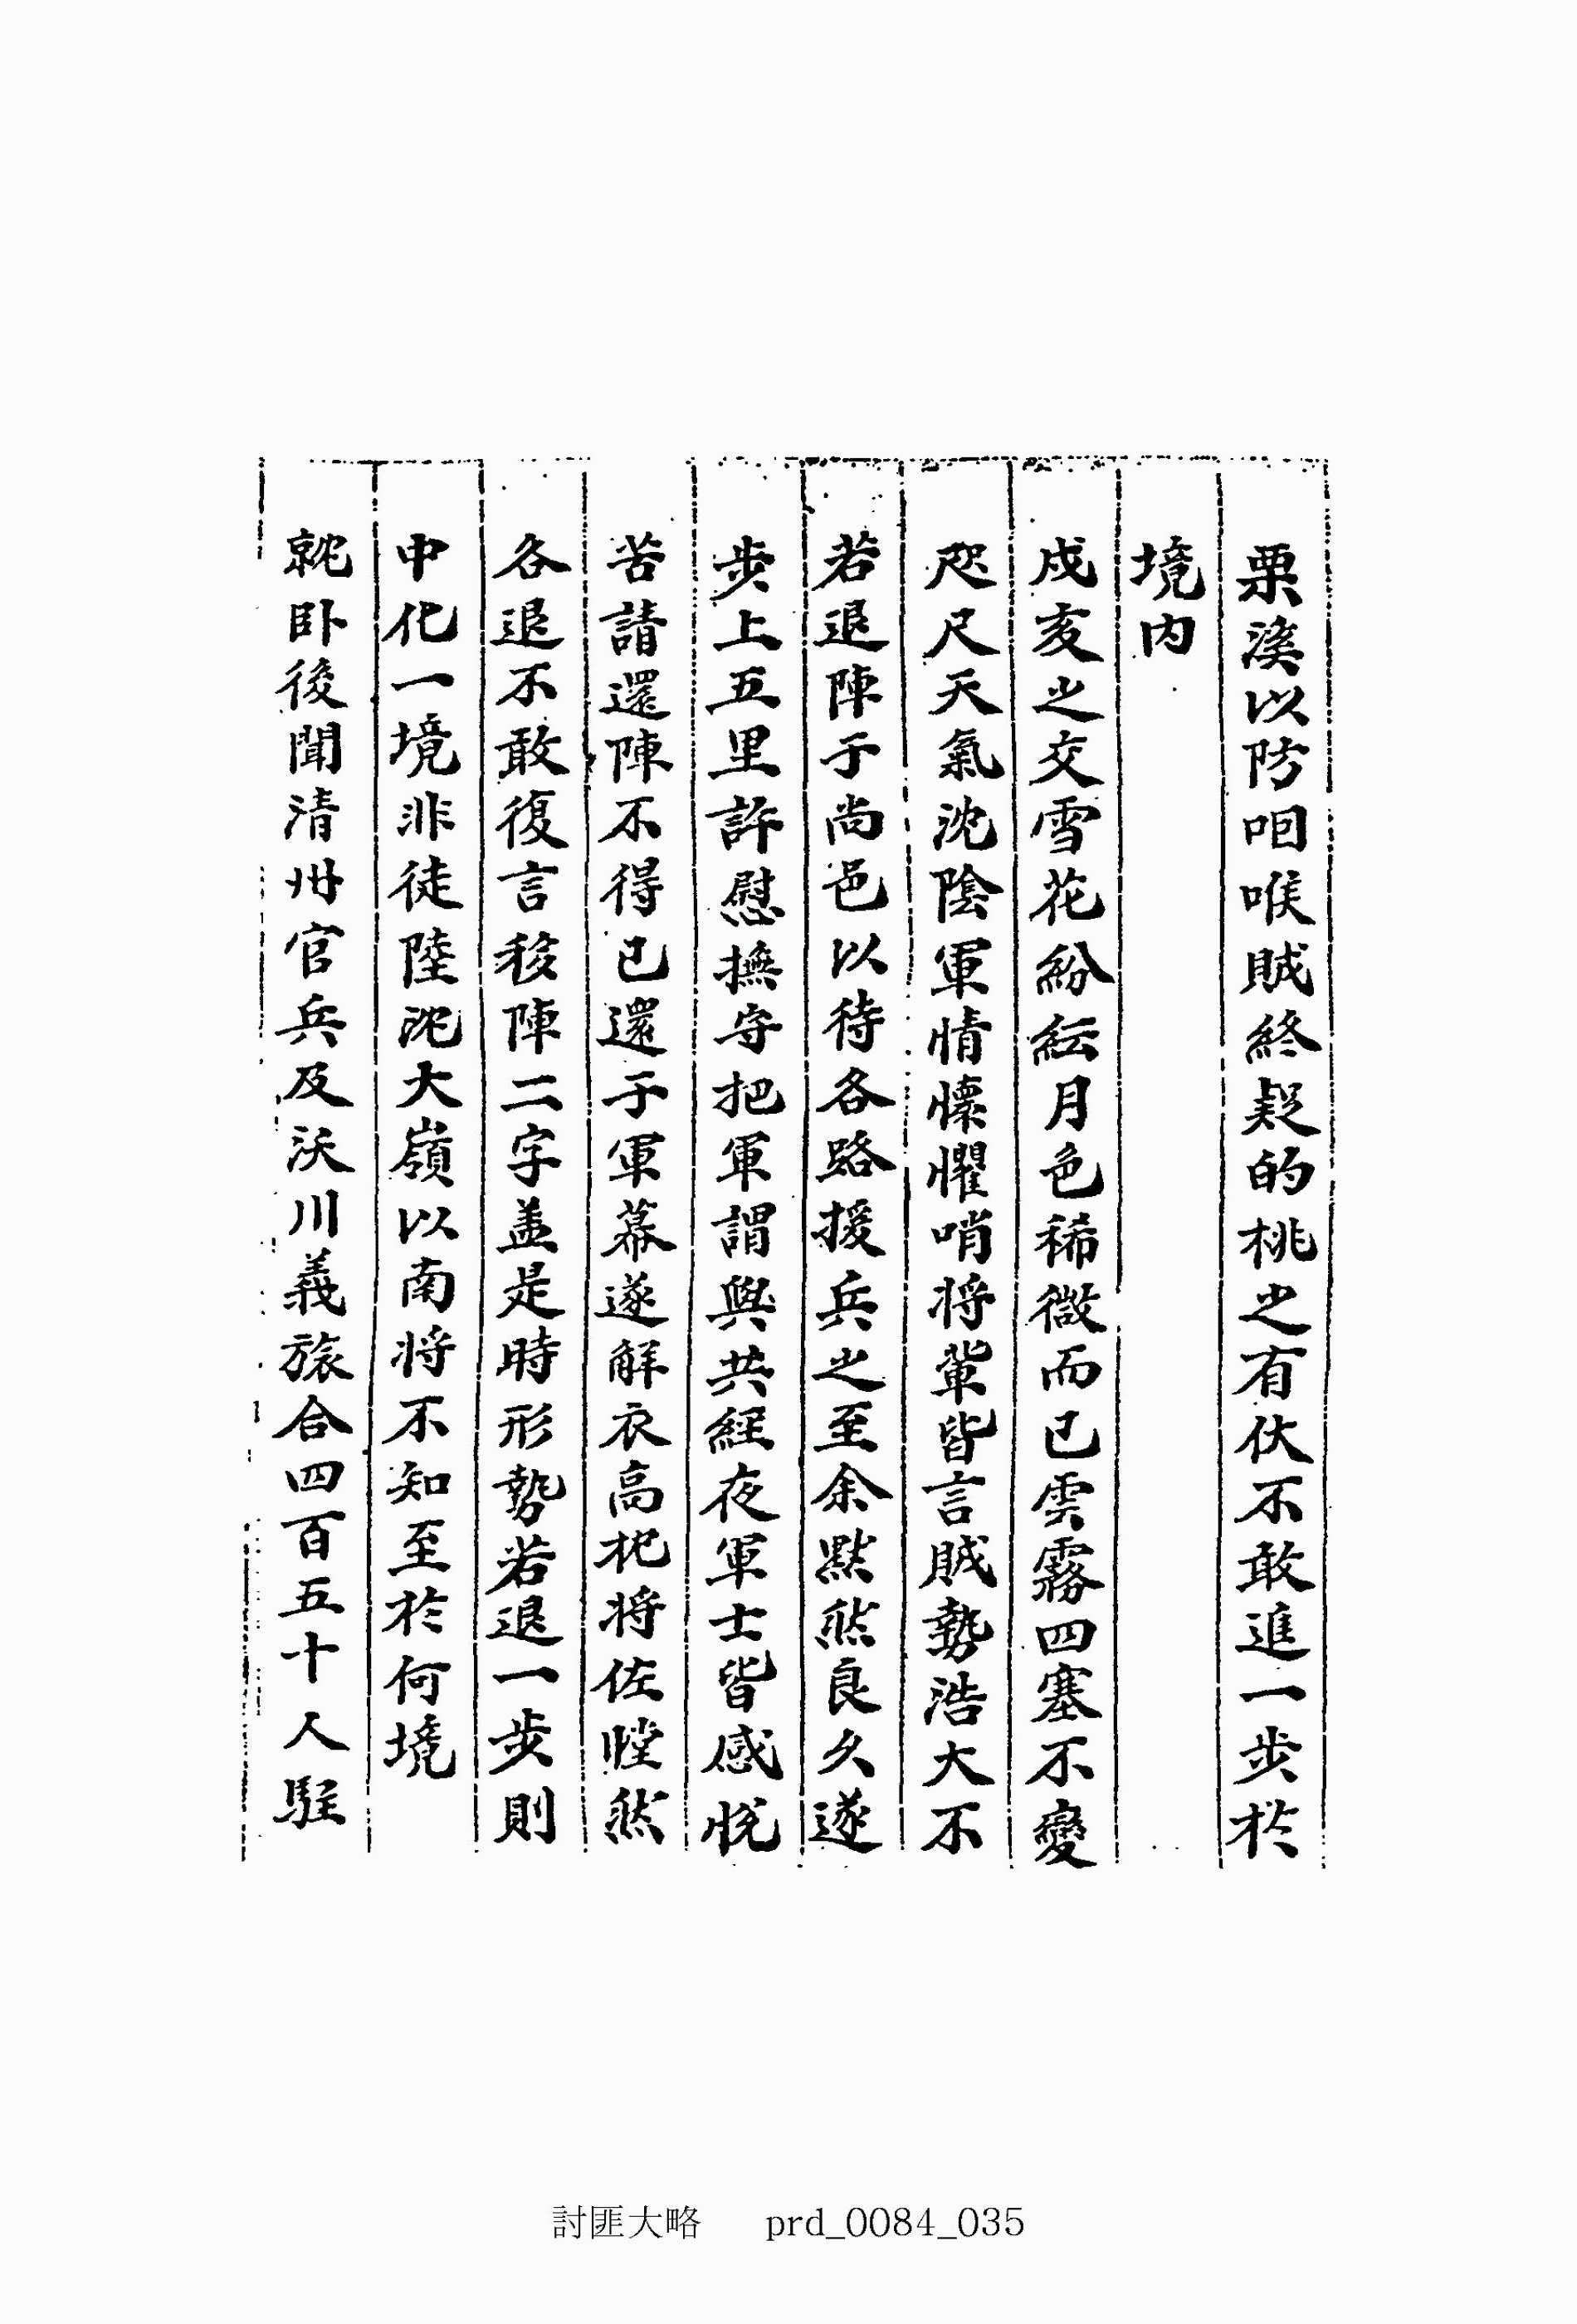 栗溪以防咽喉賊終疑的桃之有伏不敢進一步於
境內
戍亥之交雪花紛紜月色稀微而已雲霧四塞不變
咫尺天氣沈陰軍情懍懼哨將軰皆言賊勢浩大不
若退陣于尚邑以待各路援兵之至余默然良久遂
步上五里許慰撫守把軍謂與共經夜軍士皆感悅
苦請還陣不得已還于軍幕遂解衣高枕將佐瞠然
各退不敢復言移陣二字盖是時形勢若退一步則
中化一境非徒陸沈大嶺以南將不知至於何境
就卧後聞清州官兵及沃川義旅合四百五十人駐
討匪大略 prd_0084_035